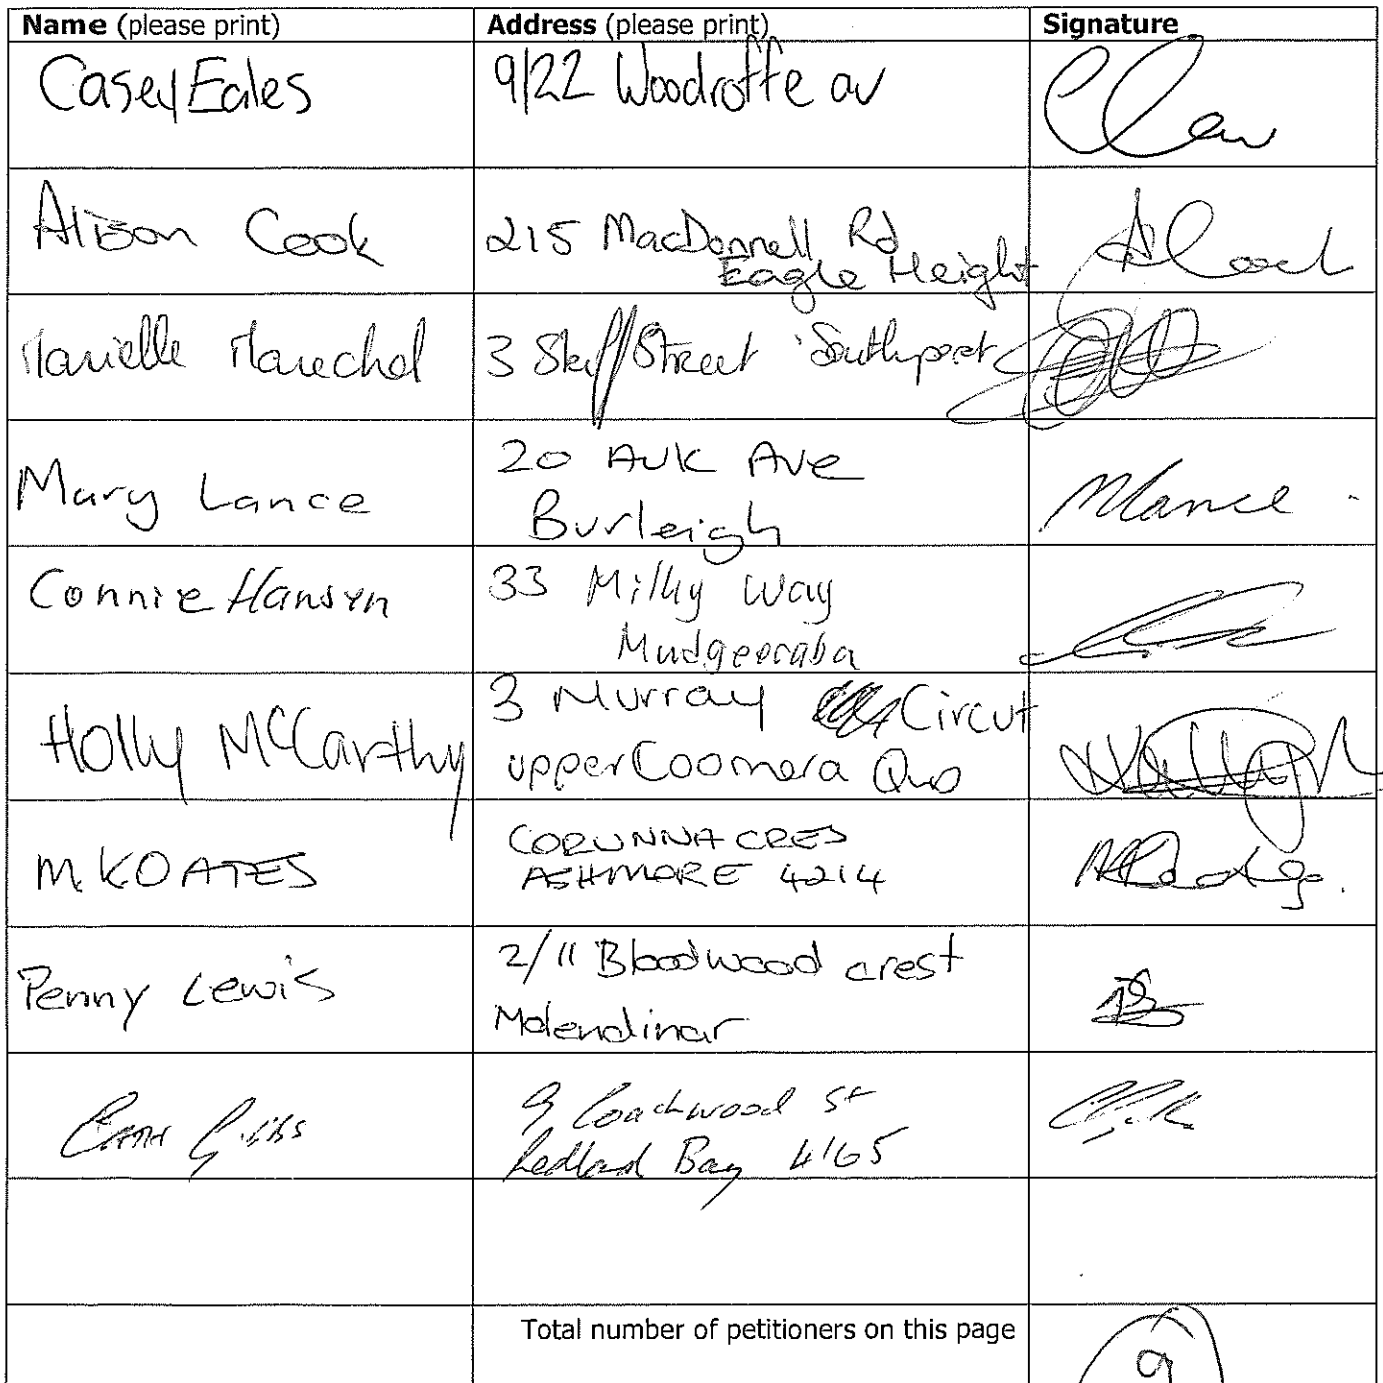 Name (please print) Address (please print) Signature
Casey Eales 9/22 Woodroffe av
Alison Cook 215 MacDonnell Rd
Eagle Height
Marielle Marechal 3 Skiff Street Southport
Mary Lance 20 Auk Ave
Burleigh
MLance
Connie Hansen 33 Milky Way
Mudgeeraba
Holly McCarthy 3 Murray Circut
upper Coomera QLD
M. KOATES CORUNNA CRES
ASHMORE 4214
Penny Lewis 2/11 Bloodwood crest
Molendinar
Gibbs 9 Coachwood St
Redland Bay 4165
Total number of petitioners on this page 9